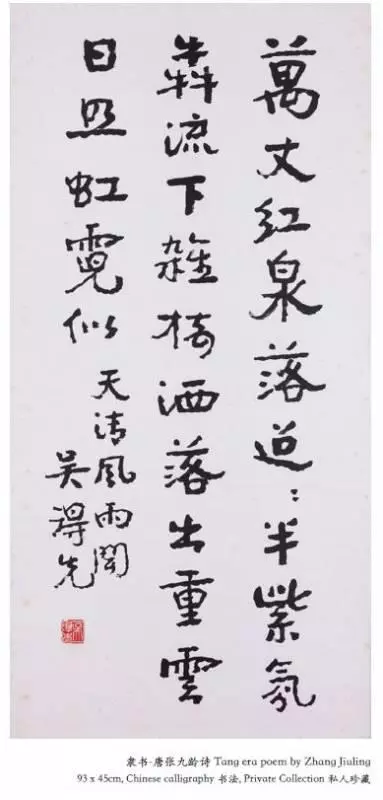 萬丈紅泉落迢〻半紫氛
犇流下雜樹洒落出重雲
日照虹霓似
天清風雨聞
吳得先
隶书-唐张九龄诗 Tang era poem by Zhang Jiuling
93 x 45cm, Chinese calligraphy 书法, Private Collection 私人珍藏